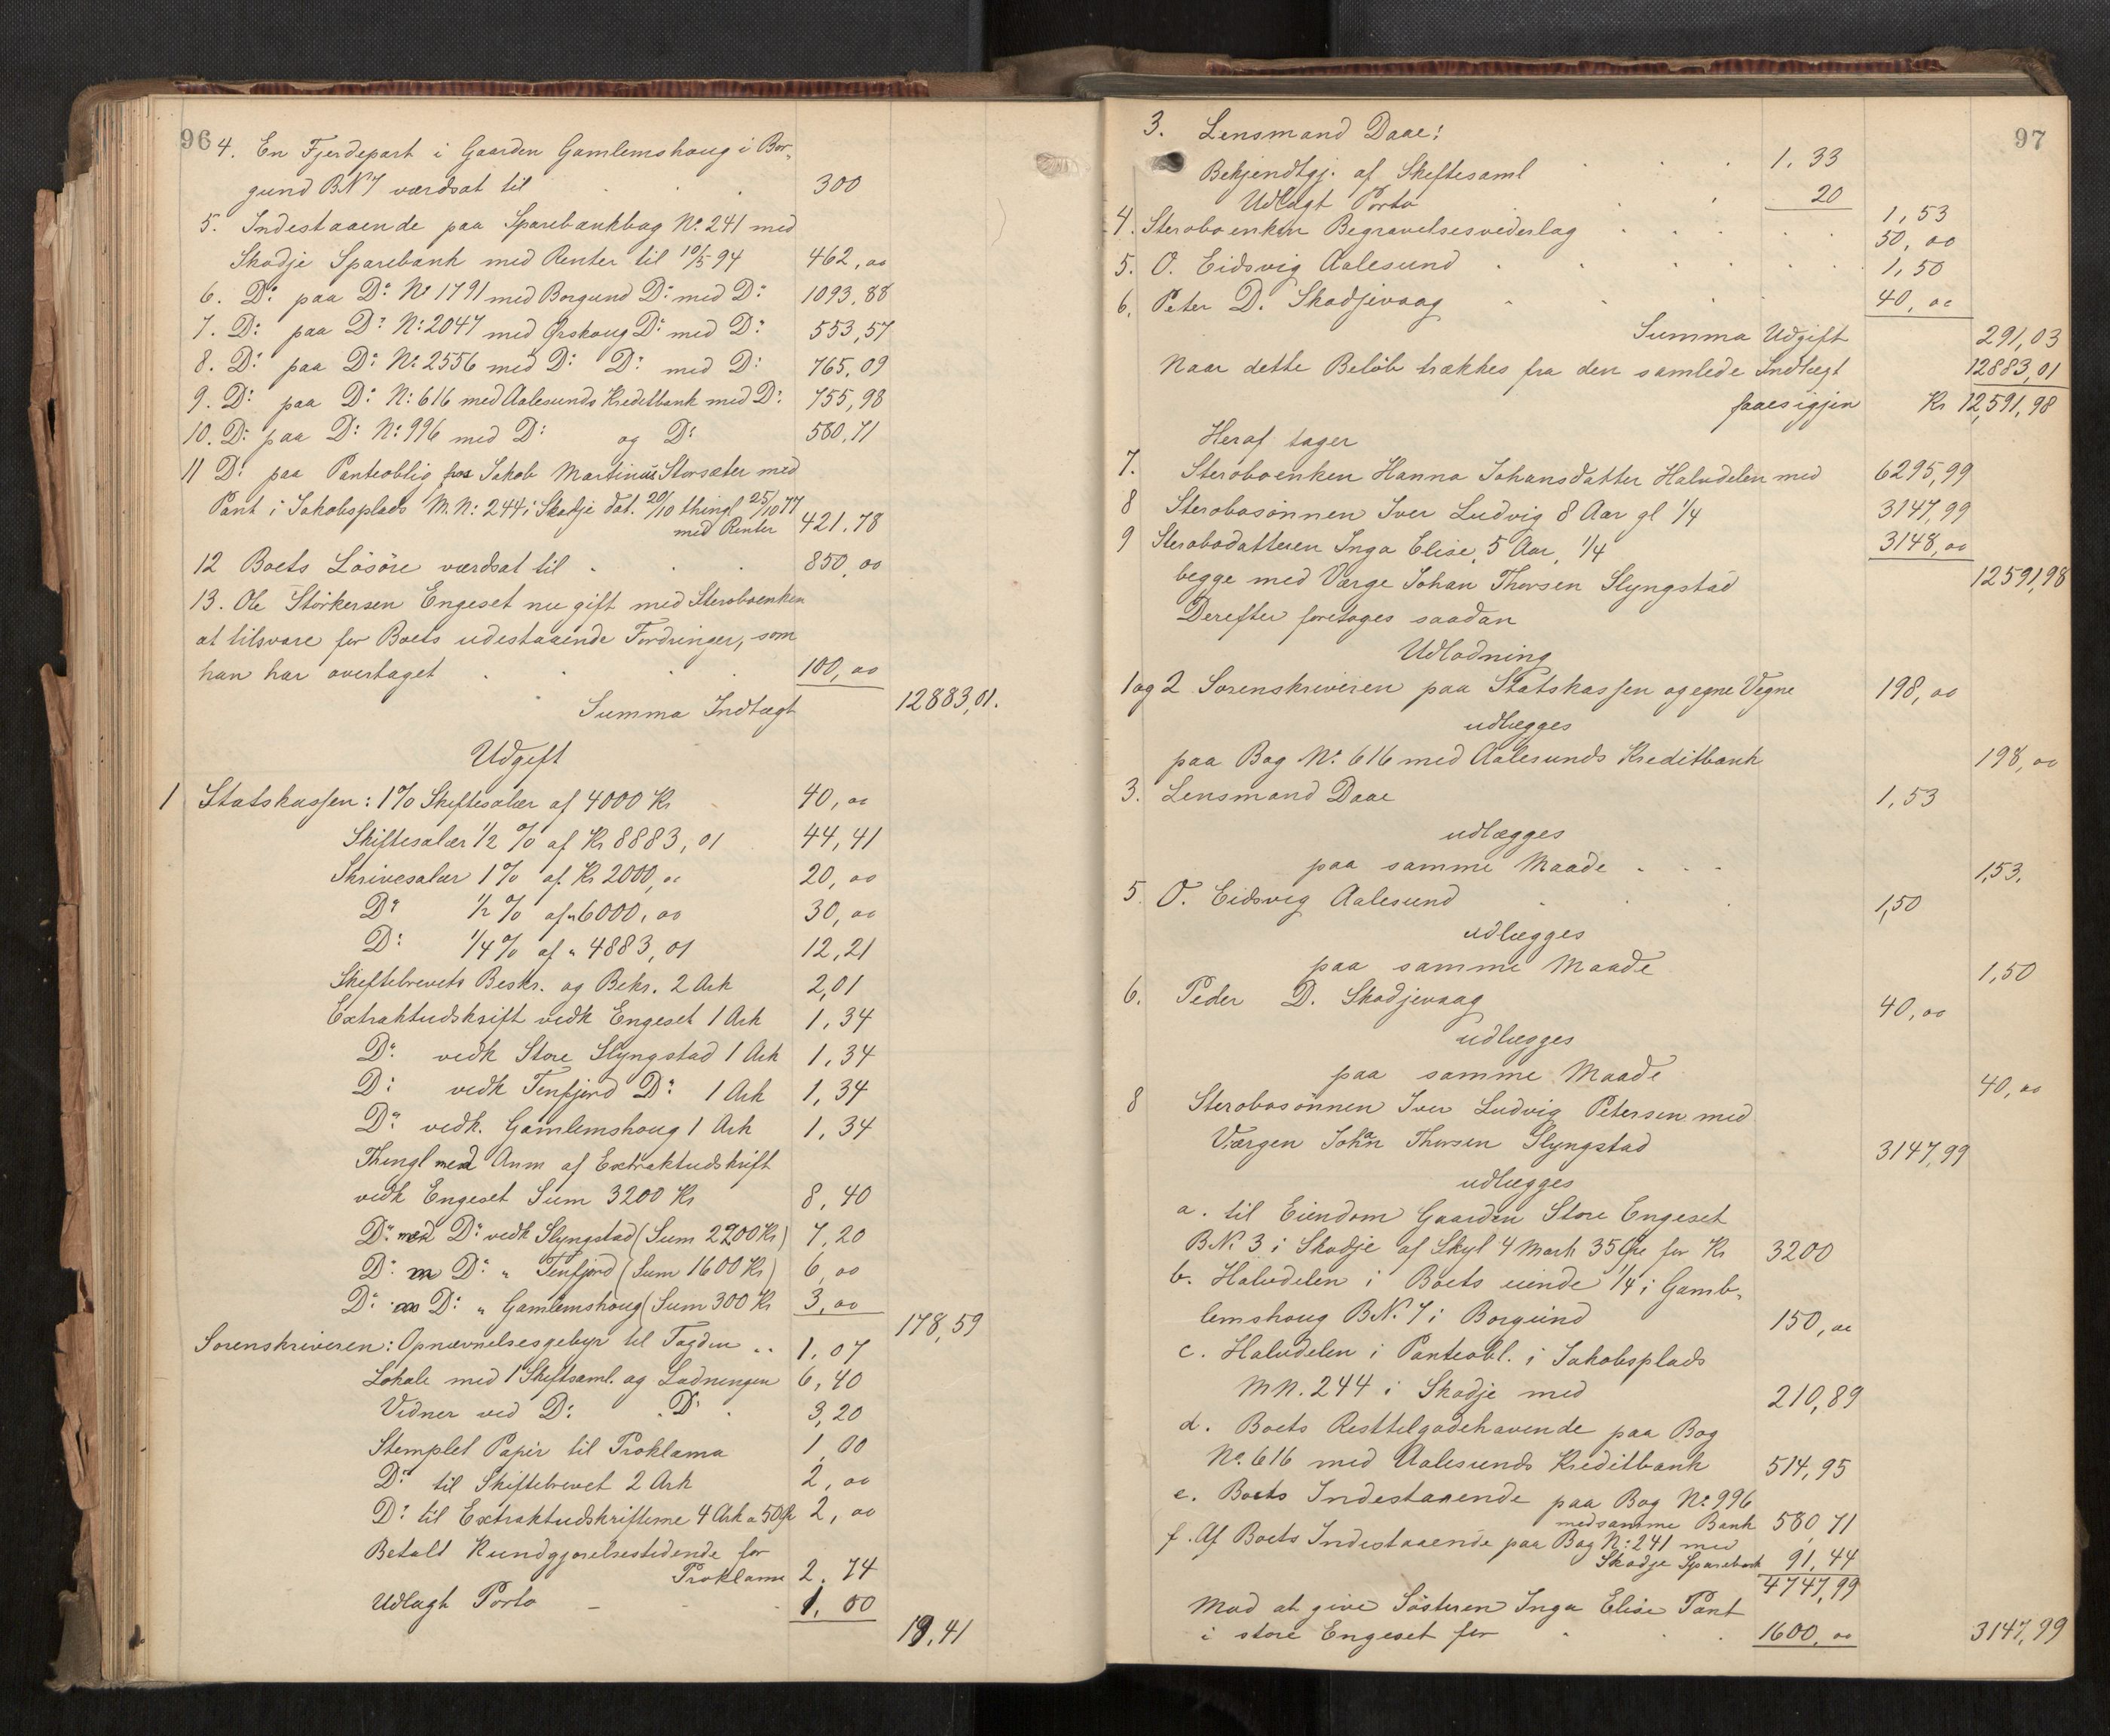 96
4. En Fjerdepart i Gaarden Gamlemshoug i Bor-
gund BN 7 værdsat til . . . 300
5. Indestaaende paa Sparebankbog No. 241 med
Skodje Sparebank med Renter til 10/5 94 462,00
6. Do: paa Do: No 1791 med Borgund Do: med Do: 1093,88
7. Do: paa Do: No: 2047 med Ørskoug Do: med Do: 553,57
8. Do: paa Do: No: 2556 med Do: Do: med Do: 765,09
9. Do: paa Do: No: 616 med Aalesunds Kreditbank med Do: 755,98
10. Do: paa Do: No: 996 med Do: og Do: 580,71
11 Do: paa Panteoblig fra Jakob Martinus Storsæter med
Pant i Jakobsplads M.No: 244 i Skodje dat. 20/10 thingl 25/10 77
med Renter 421.78
12 Boets Løsøre værdsat til . . . 850,00
13. Ole Størkersen Engeset nu gift med Sterboenken
at tilsvare for Boets udestaaende Fordringer, som
han har overtaget . . . . 100,00
Summa Indtægt 12883,01.
Udgift
1 Statskassen: 1% Skiftesalær af 4000 Kr 40,00
Skiftesalær 1/2 % af Kr 8883,01 44,41
Skrivesalær 1% af Kr 2000,00 20,00
Do: 1/2 % af " 6000,00 30,00
Do: 1/4 % af " 4883,01 12,21
Skiftebrevets Beskr. og Bekr. 2 Ark 2,01
Extraktudskrift vedk Engeset 1 Ark 1,34
Do: vedk Store Slyngstad 1 Ark 1,34
Do: vedk Tenfjord Do: 1 Ark 1,34
Do: vedk. Gamlemshoug 1 Ark 1,34
Thingl med Anm af Extraktudskrift
vedk Engeset Sum 3200 Kr 8,40
Do: med Do: vedk Slyngstad (Sum 2200 Kr) 7,20
Do: m Do: " Tenfjord (Sum 1600 Kr) 6,00
Do: m Do: " Gamlemshoug (Sum 300 Kr 3,00
178,59
Sorenskriveren: Opnævnelsesgebyr til Taxten .. 1,07
Lokale med 1 Skiftsaml. og Lodningen 6,40
Vidner ved Do: . Do: . 3,20
Stemplet Papir til Proklama 1,00
Do: til Skiftebrevet 2 Ark 2,00
Do: til Extraktudskrifterne 4 Ark a 50 Ør 2,00
Betalt Kundgjørelsestidende for
Proklama 2.74
Udlagt Porto - - . 1,00
19,41
97
3. Lensmand Daae:
Bekjendtgj. af Skiftesaml . . . 1,33
Udlagt Porto . 20
1,53
4. Sterboenken Begravelsesvederlag . . . . . 50,00
5. O. Eidsvig Aalesund . . . . . . 1,50
6. Peter D. Skodjevaag . . . . 40,00
Summa Udgift 291,03
Naar dette Beløb trækkes fra den samlede Indtægt 12883,01
faaes igjen Kr 12,591,98
Heraf tager
7. Sterboenken Hanna Johansdatter Halvdelen med 6295,99
8 Sterbosønnen Iver Ludvig 8 Aar gl 1/4 3147,99
9 Sterbodatteren Inga Elise, 5 Aar, 1/4 3148,00
begge med Værge Johan Thorsen Slyngstad 12591,98
Derefter foretages saadan
Udlodning
1 og 2 Sorenskriveren paa Statskassen og egne Vegne 198,00
udlægges
paa Bog No. 616 med Aalesunds Kreditbank 198,00
3. Lensmand Daae 1,53
udlægges
paa samme Maade . . . 1,53.
5. O. Eidsvig Aalesund . . 1,50
udlægges
paa samme Maade 1,50
6. Peder D. Skodjevaag 40,00
udlægges
paa samme Maade 40,00
8 Sterbosønnen Iver Ludvig Petersen med
Værgen Johan Thorsen Slyngstad 3147,99
udlægges
a. til Eiendom Gaarden Store Engeset
BN. 3 i Skodje af Skyl 4 Mark 35 Øre for Kr 3200
b. Halvdelen i Boets eiende 1/4 i Gamb-
lemshoug BN. 7 i Borgund 150,00
c. Halvdelen i Panteobl. i Jakobsplads
MN. 244 i Skodje med 210,89
d. Boets Resttilgodehavende paa Bog
No. 616 med Aalesunds Kreditbank 514,95
e. Boets Indestaaende paa Bog No: 996
med samme Bank 580,71
f. Af Boets Indestaaende paa Bog No: 241 med
Skodje Sparebank 91,44
4747,99
Mod at give Søsteren Inga Elise Pant
i store Engeset for . . . 1600,00 3147,99